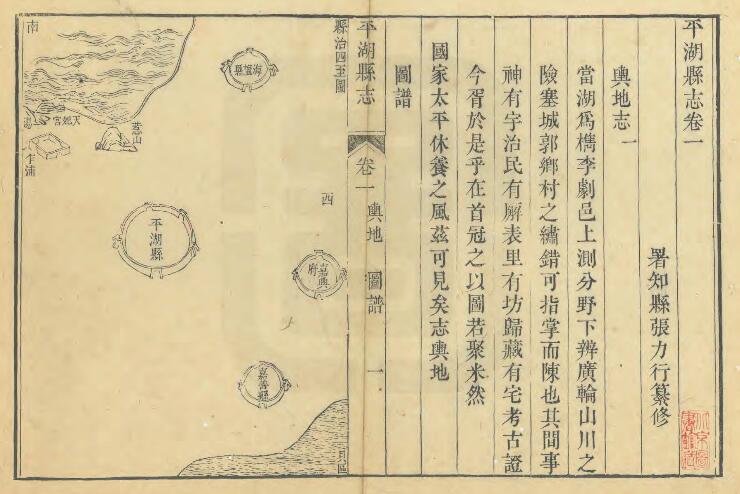 平湖縣志卷一
署知縣張力行纂修
輿地志一
當湖爲檇李劇邑上測分野下辨廣輪山川之
險塞城郭鄉村之繡錯可指掌而陳也其間事
神有宇治民有廨表里有坊歸藏有宅考古證
今胥於是乎在首冠之以圖若聚米然
國家太平休養之風茲可見矣志輿地
圖譜
平湖縣志
卷一
輿地
圖譜
一
縣治四至圖
西
海鹽縣
嘉興府
嘉善縣
平湖縣
南
天妃宮
乍浦